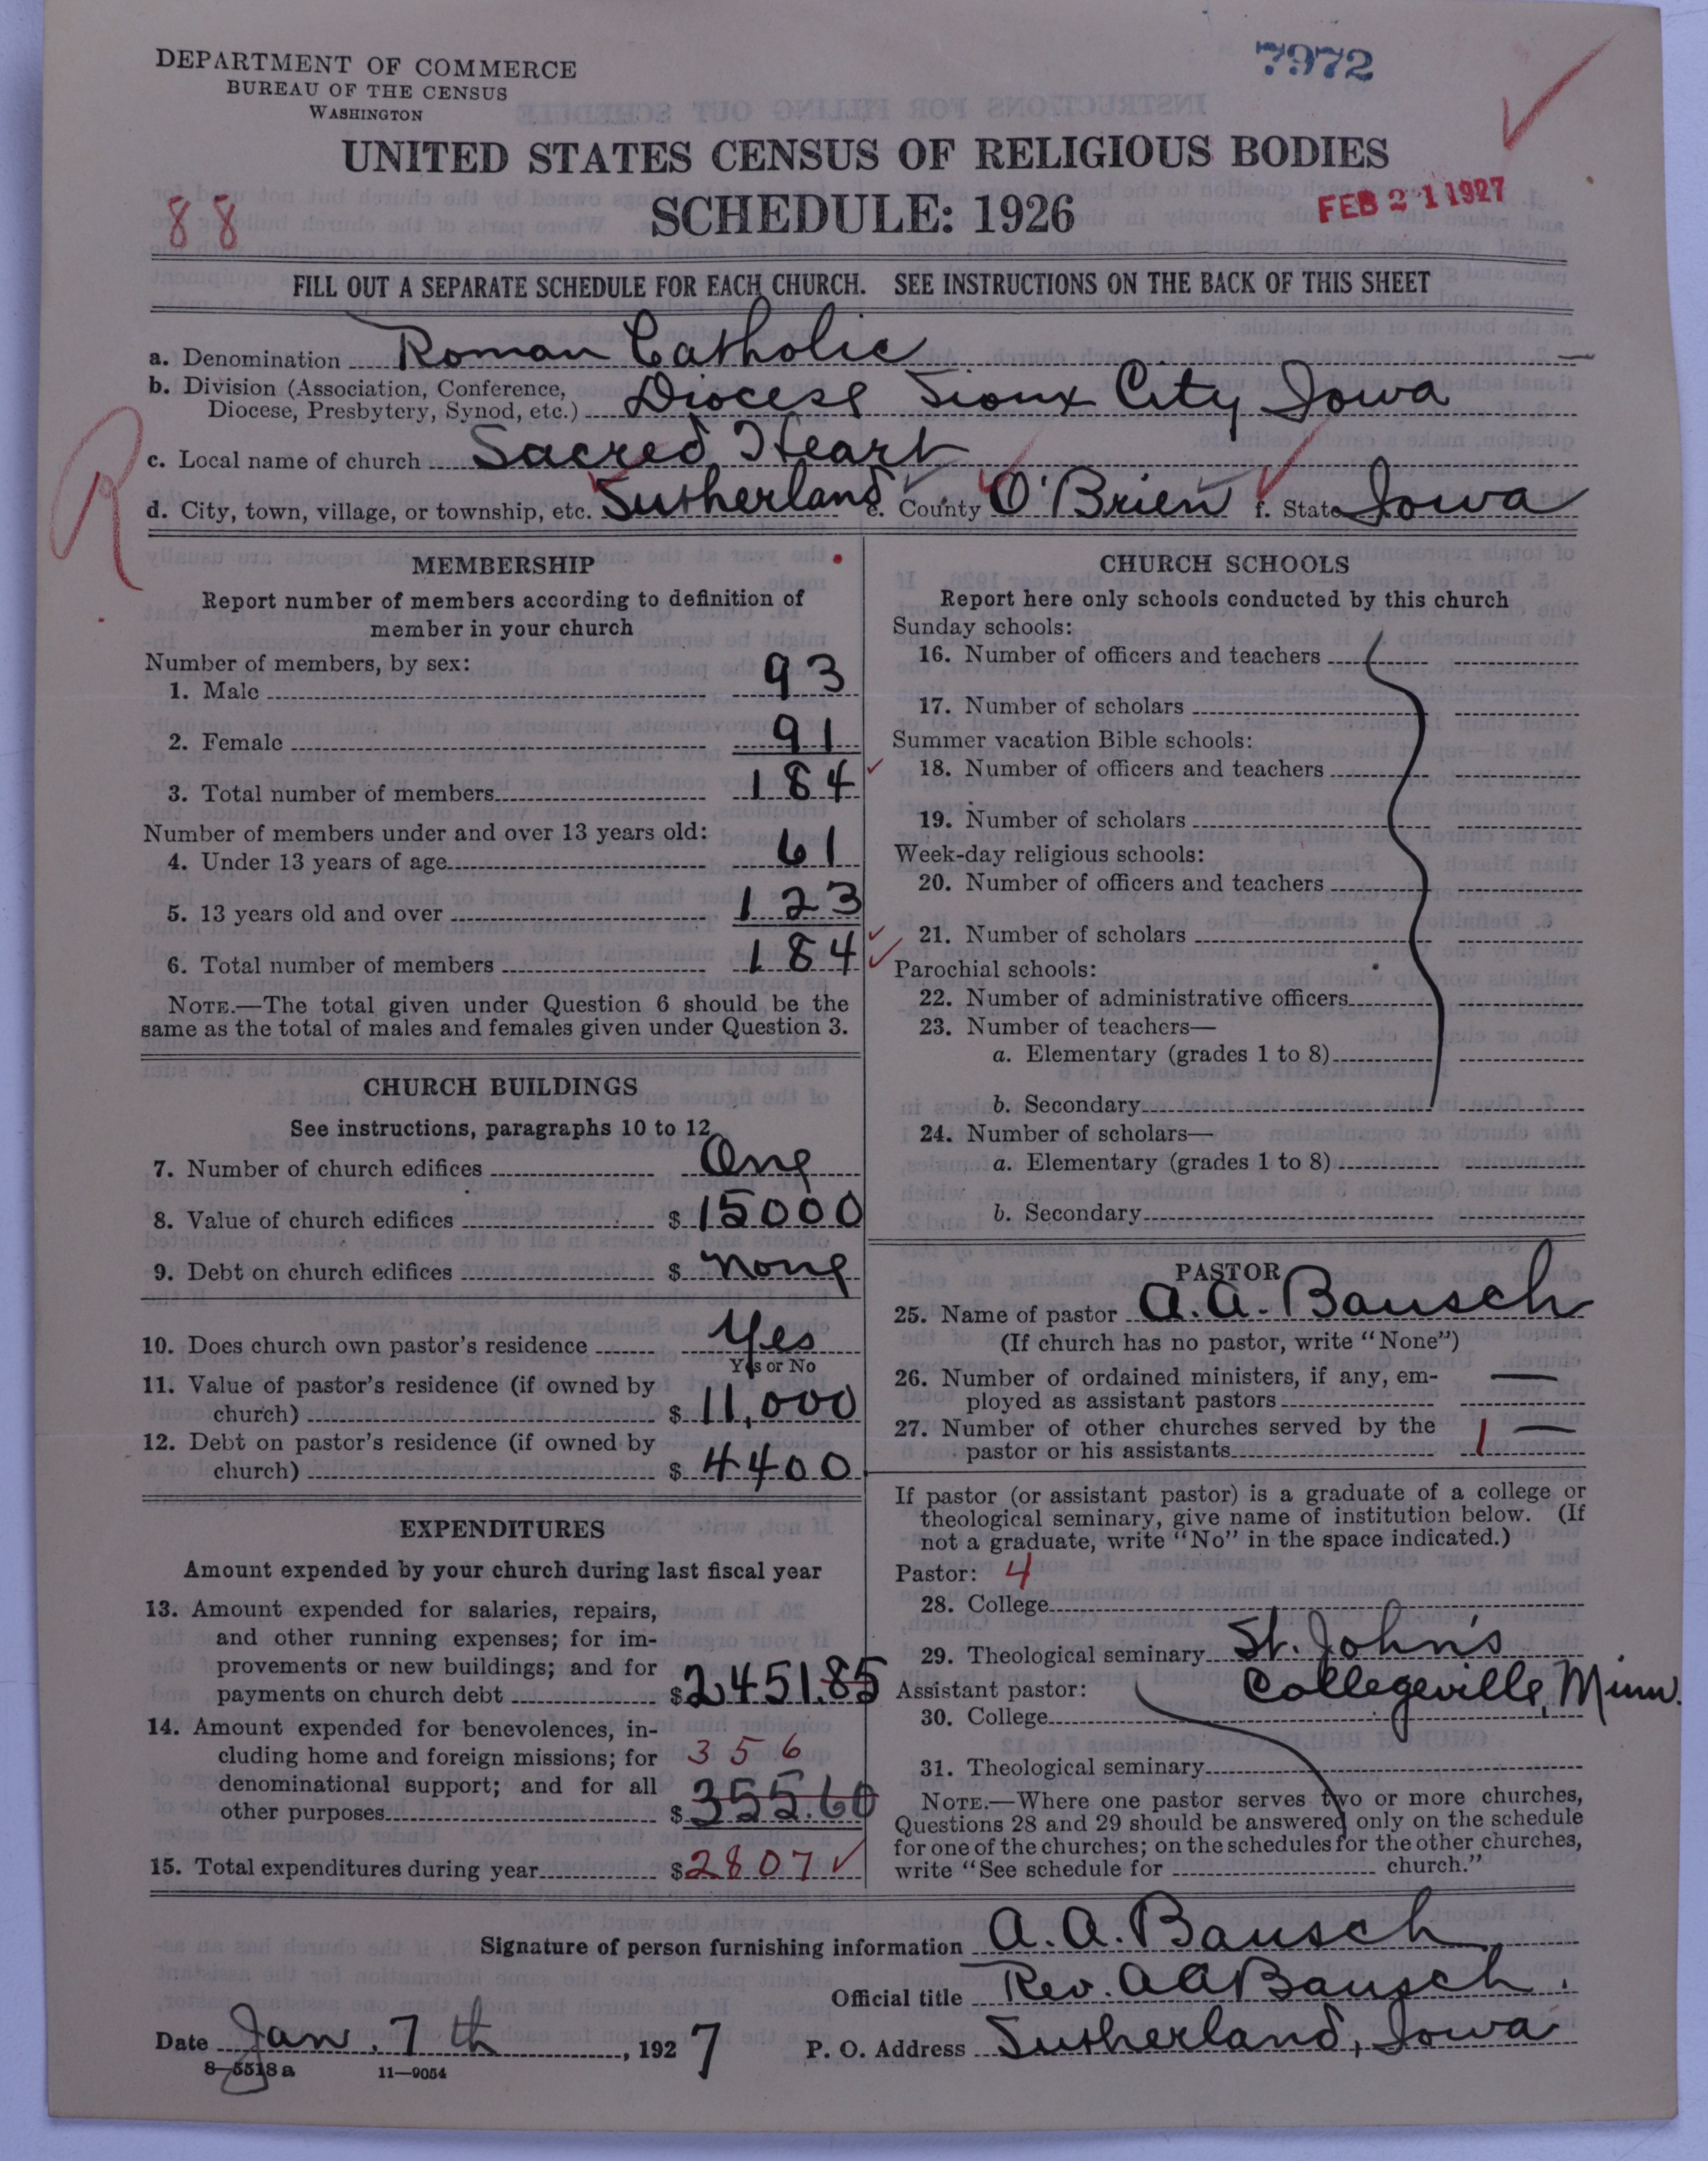 DEPARTMENT OF COMMERCE
BUREAU OF THE CENSUS
WASHINGTON
7972
UNITED STATES CENSUS OF RELIGIOUS BODIES
SCHEDULE: 1926
88
FEB 21 1927
FILL OUT A SEPARATE SCHEDULE FOR EACH CHURCH. SEE INSTRUCTIONS ON THE BACK OF THIS SHEET
a. Denomination Roman Catholic
b. Division (Association, Conference,
Diocese, Presbytery, Synod, etc.) Diocese Sioux City Iowa
R
c. Local name of church Sacred Heart
d. City, town, village, or township, etc. Sutherland e. County O'Brien f. State Iowa
MEMBERSHIP
Report number of members according to definition of
member in your church
Number of members, by sex:
1. Male 93
2. Female 91
3. Total number of members 184
Number of members under and over 13 years old:
4. Under 13 years of age 61
5. 13 years old and over 123
6. Total number of members 184
NOTE.—The total given under Question 6 should be the
same as the total of males and females given under Question 3.
CHURCH BUILDINGS
See instructions, paragraphs 10 to 12
7. Number of church edifices One
8. Value of church edifices $ 15000
9. Debt on church edifices $ none
10. Does church own pastor's residence Yes
Yes or No
11. Value of pastor's residence (if owned by
church) $ 11,000
12. Debt on pastor's residence (if owned by
church) $ 4400
EXPENDITURES
Amount expended by your church during last fiscal year
13. Amount expended for salaries, repairs,
and other running expenses; for im-
provements or new buildings; and for
payments on church debt $ 2451.85
14. Amount expended for benevolences, in-
cluding home and foreign missions; for 356
denominational support; and for all
other purposes $ 355.60
15. Total expenditures during year $ 2807
CHURCH SCHOOLS
Report here only schools conducted by this church
Sunday schools:
16. Number of officers and teachers
17. Number of scholars
Summer vacation Bible schools:
18. Number of officers and teachers
19. Number of scholars
Week-day religious schools:
20. Number of officers and teachers
21. Number of scholars
Parochial schools:
22. Number of administrative officers
23. Number of teachers—
a. Elementary (grades 1 to 8)
b. Secondary
24. Number of scholars—
a. Elementary (grades 1 to 8)
b. Secondary
PASTOR
25. Name of pastor A.A. Bausch
(If church has no pastor, write "None")
26. Number of ordained ministers, if any, em-
ployed as assistant pastors —
27. Number of other churches served by the
pastor or his assistants 1 —
If pastor (or assistant pastor) is a graduate of a college or
theological seminary, give name of institution below. (If
not a graduate, write "No" in the space indicated.)
Pastor: 4
28. College
29. Theological seminary St. John's
Assistant pastor: Collegeville, Minn.
30. College
31. Theological seminary
NOTE.—Where one pastor serves two or more churches,
Questions 28 and 29 should be answered only on the schedule
for one of the churches; on the schedules for the other churches,
write "See schedule for church."
Signature of person furnishing information A.A. Bausch
Official title Rev. AA Bausch.
Date Jan. 7th, 1927 P. O. Address Sutherland, Iowa
8—5518a 11—9054